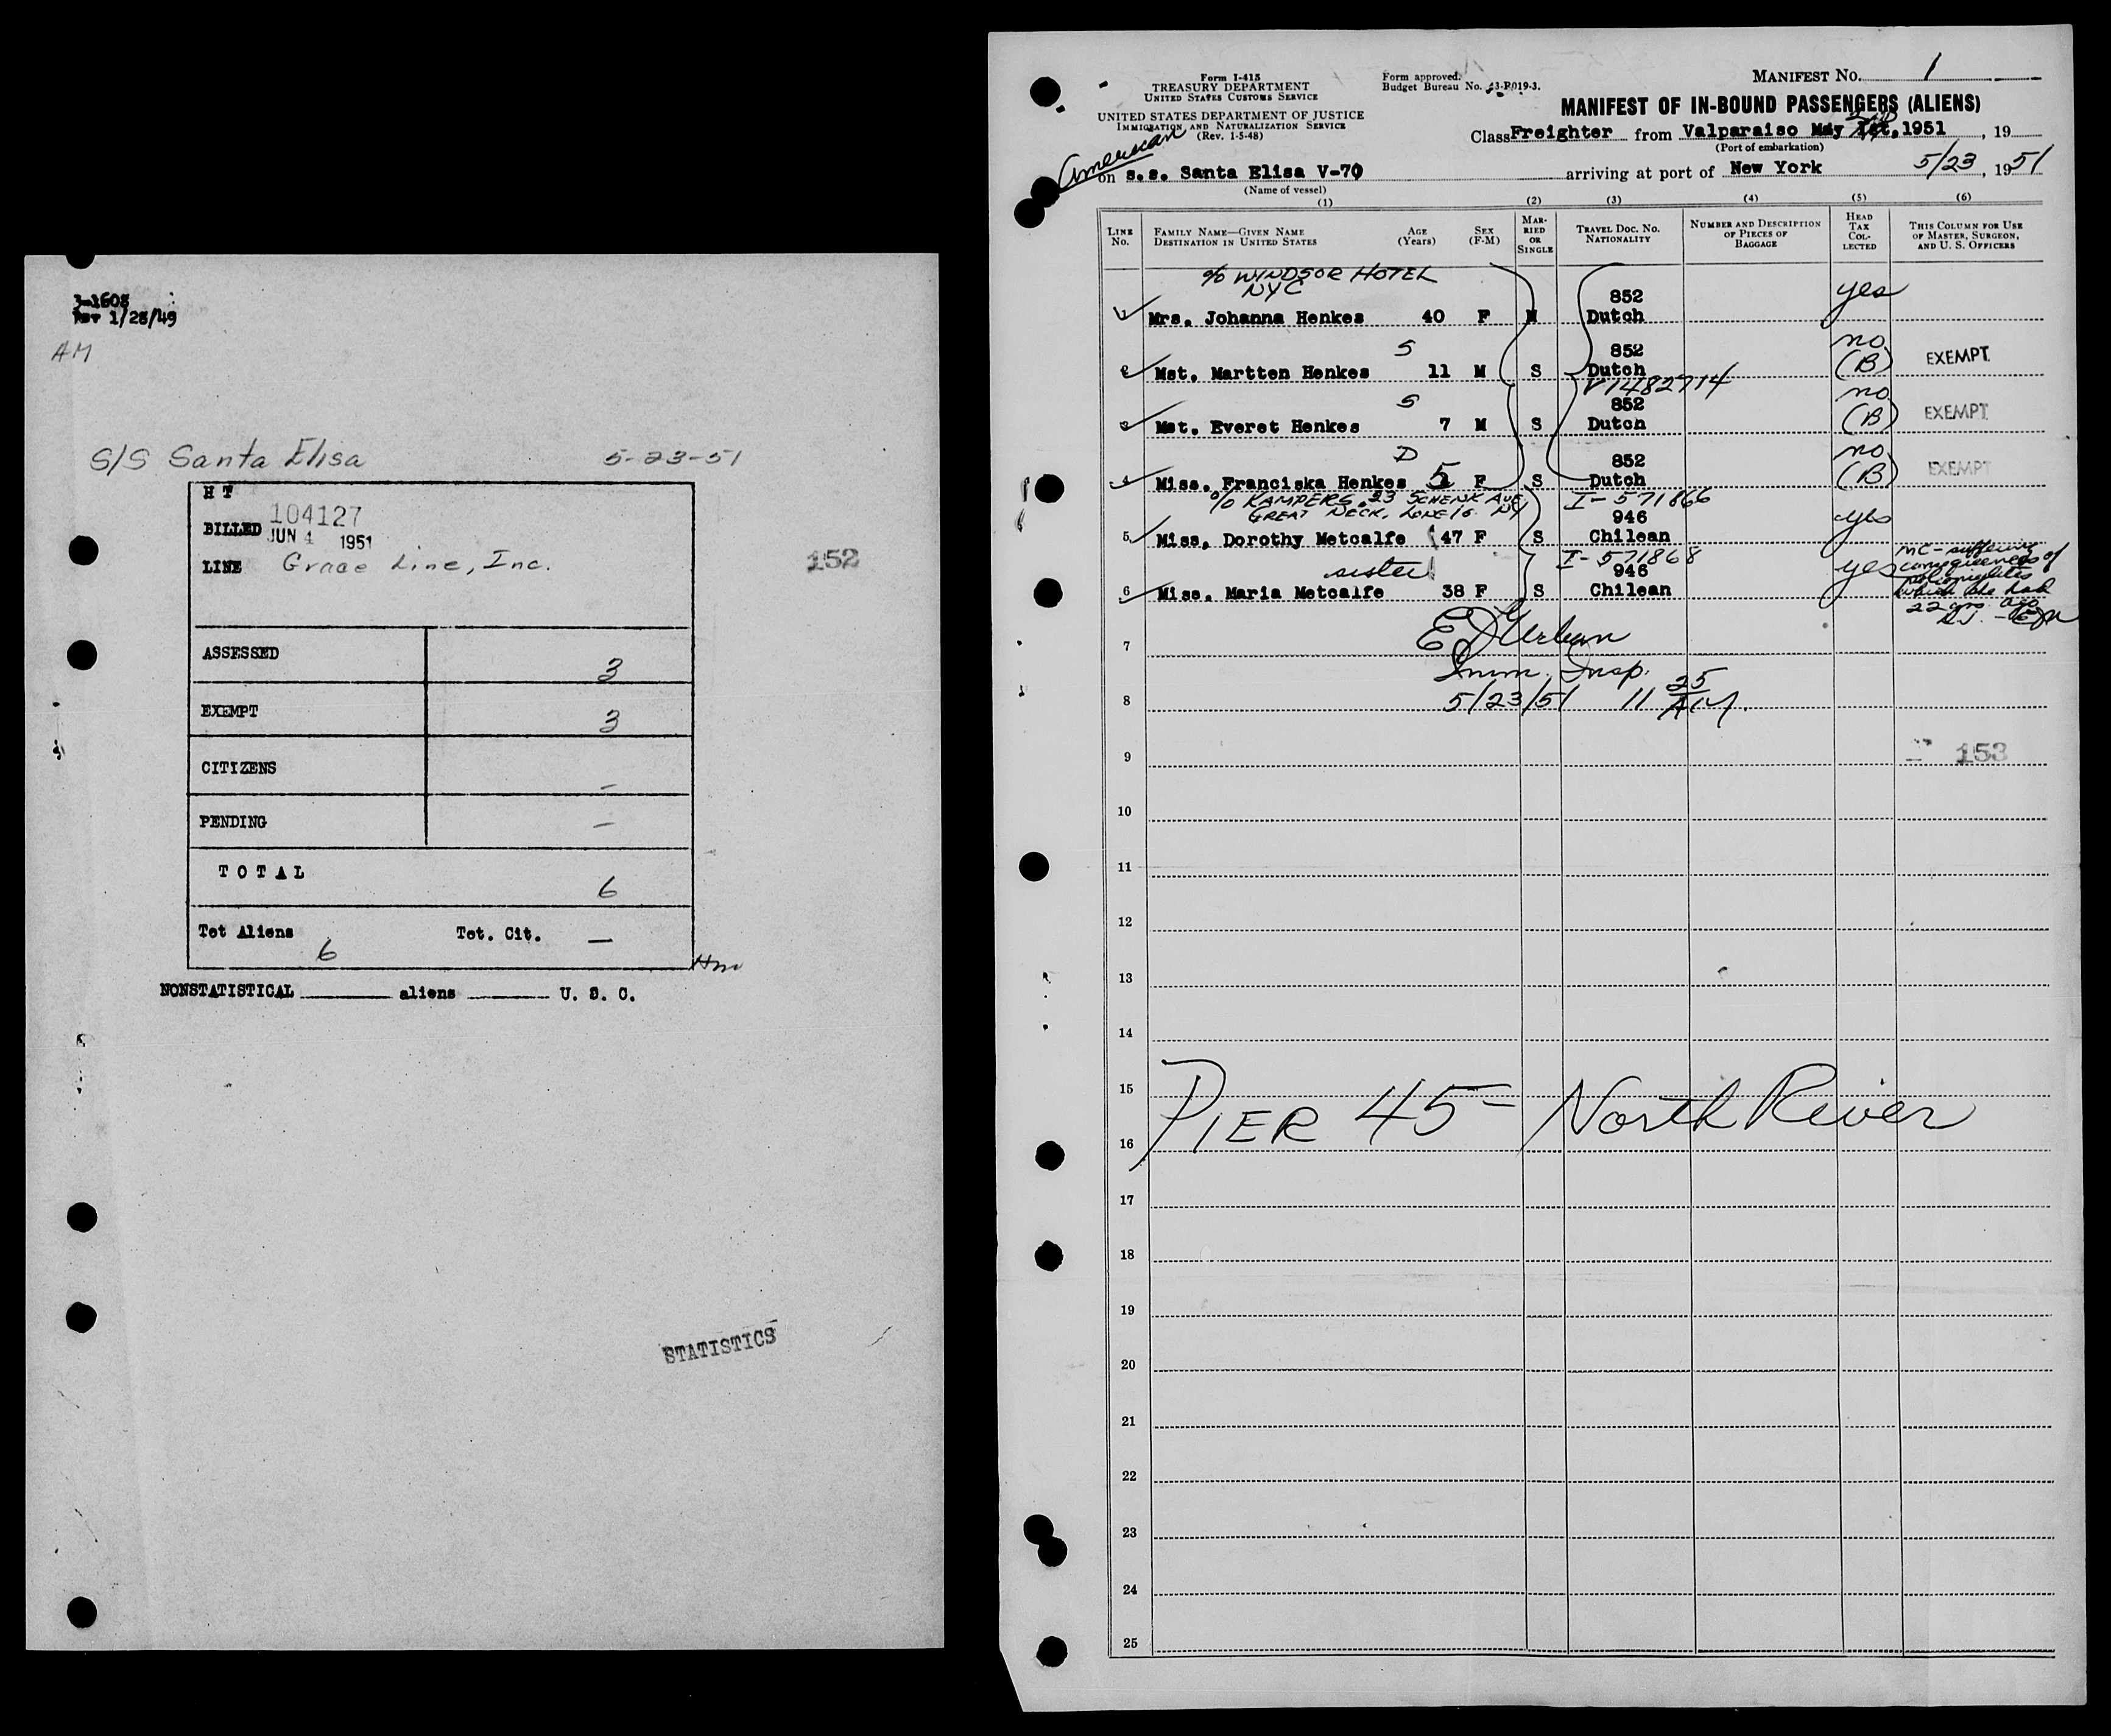 3-1608
Rev 1/28/49
AM
S/S Santa Elisa 5-23-51
H T
BILLED 104127
JUN 4 1951
LINE Grace Line, Inc.
152
ASSESSED 3
EXEMPT 3
CITIZENS -
PENDING -
TOTAL 6
Tot Aliens 6 Tot. Cit. -
Hm
NONSTATISTICAL ______ aliens ______ U. S. C.
STATISTICS
Form I-415
TREASURY DEPARTMENT
UNITED STATES CUSTOMS SERVICE
UNITED STATES DEPARTMENT OF JUSTICE
IMMIGRATION AND NATURALIZATION SERVICE
(Rev. 1-5-48)
Form approved.
Budget Bureau No. 43-R019-3.
MANIFEST NO. 1
MANIFEST OF IN-BOUND PASSENGERS (ALIENS)
Class Freighter from Valparaiso May 2nd, 1951, 19
(Port of embarkation)
American
on s.s. Santa Elisa V-70 arriving at port of New York 5/23, 1951
(Name of vessel)
(1) (2) (3) (4) (5) (6)
LINE NO. FAMILY NAME—GIVEN NAME DESTINATION IN UNITED STATES AGE (Years) SEX (F-M) MARRIED OR SINGLE TRAVEL DOC. NO. NATIONALITY NUMBER AND DESCRIPTION OF PIECES OF BAGGAGE HEAD TAX COLLECTED THIS COLUMN FOR USE OF MASTER, SURGEON, AND U. S. OFFICERS
c/o WINDSOR HOTEL
NYC
852 yes
1 Mrs. Johanna Henkes 40 F M Dutch
S 852 no
2 Mst. Martten Henkes 11 M S Dutch (B) EXEMPT
V1482714
S 852 no
3 Mst. Everet Henkes 7 M S Dutch (B) EXEMPT
D 852 no
4 Miss. Franciska Henkes 5 F S Dutch (B) EXEMPT
c/o KAMPERS, 23 SCHENK AVE I-571866
GREAT NECK, LONG IS. NY 946 yes
5 Miss. Dorothy Metcalfe 47 F S Chilean
I-571868
sister 946 yes
6 Miss. Maria Metcalfe 38 F S Chilean
MC - suffering
consequences of
poliomyelitis
which she had
22 yrs. ago
7 E J Urban
Imm. Insp.
8 5/23/51 11 25 AM.
9 153
10
11
12
13
14
15
PIER 45 - North River
16
17
18
19
20
21
22
23
24
25